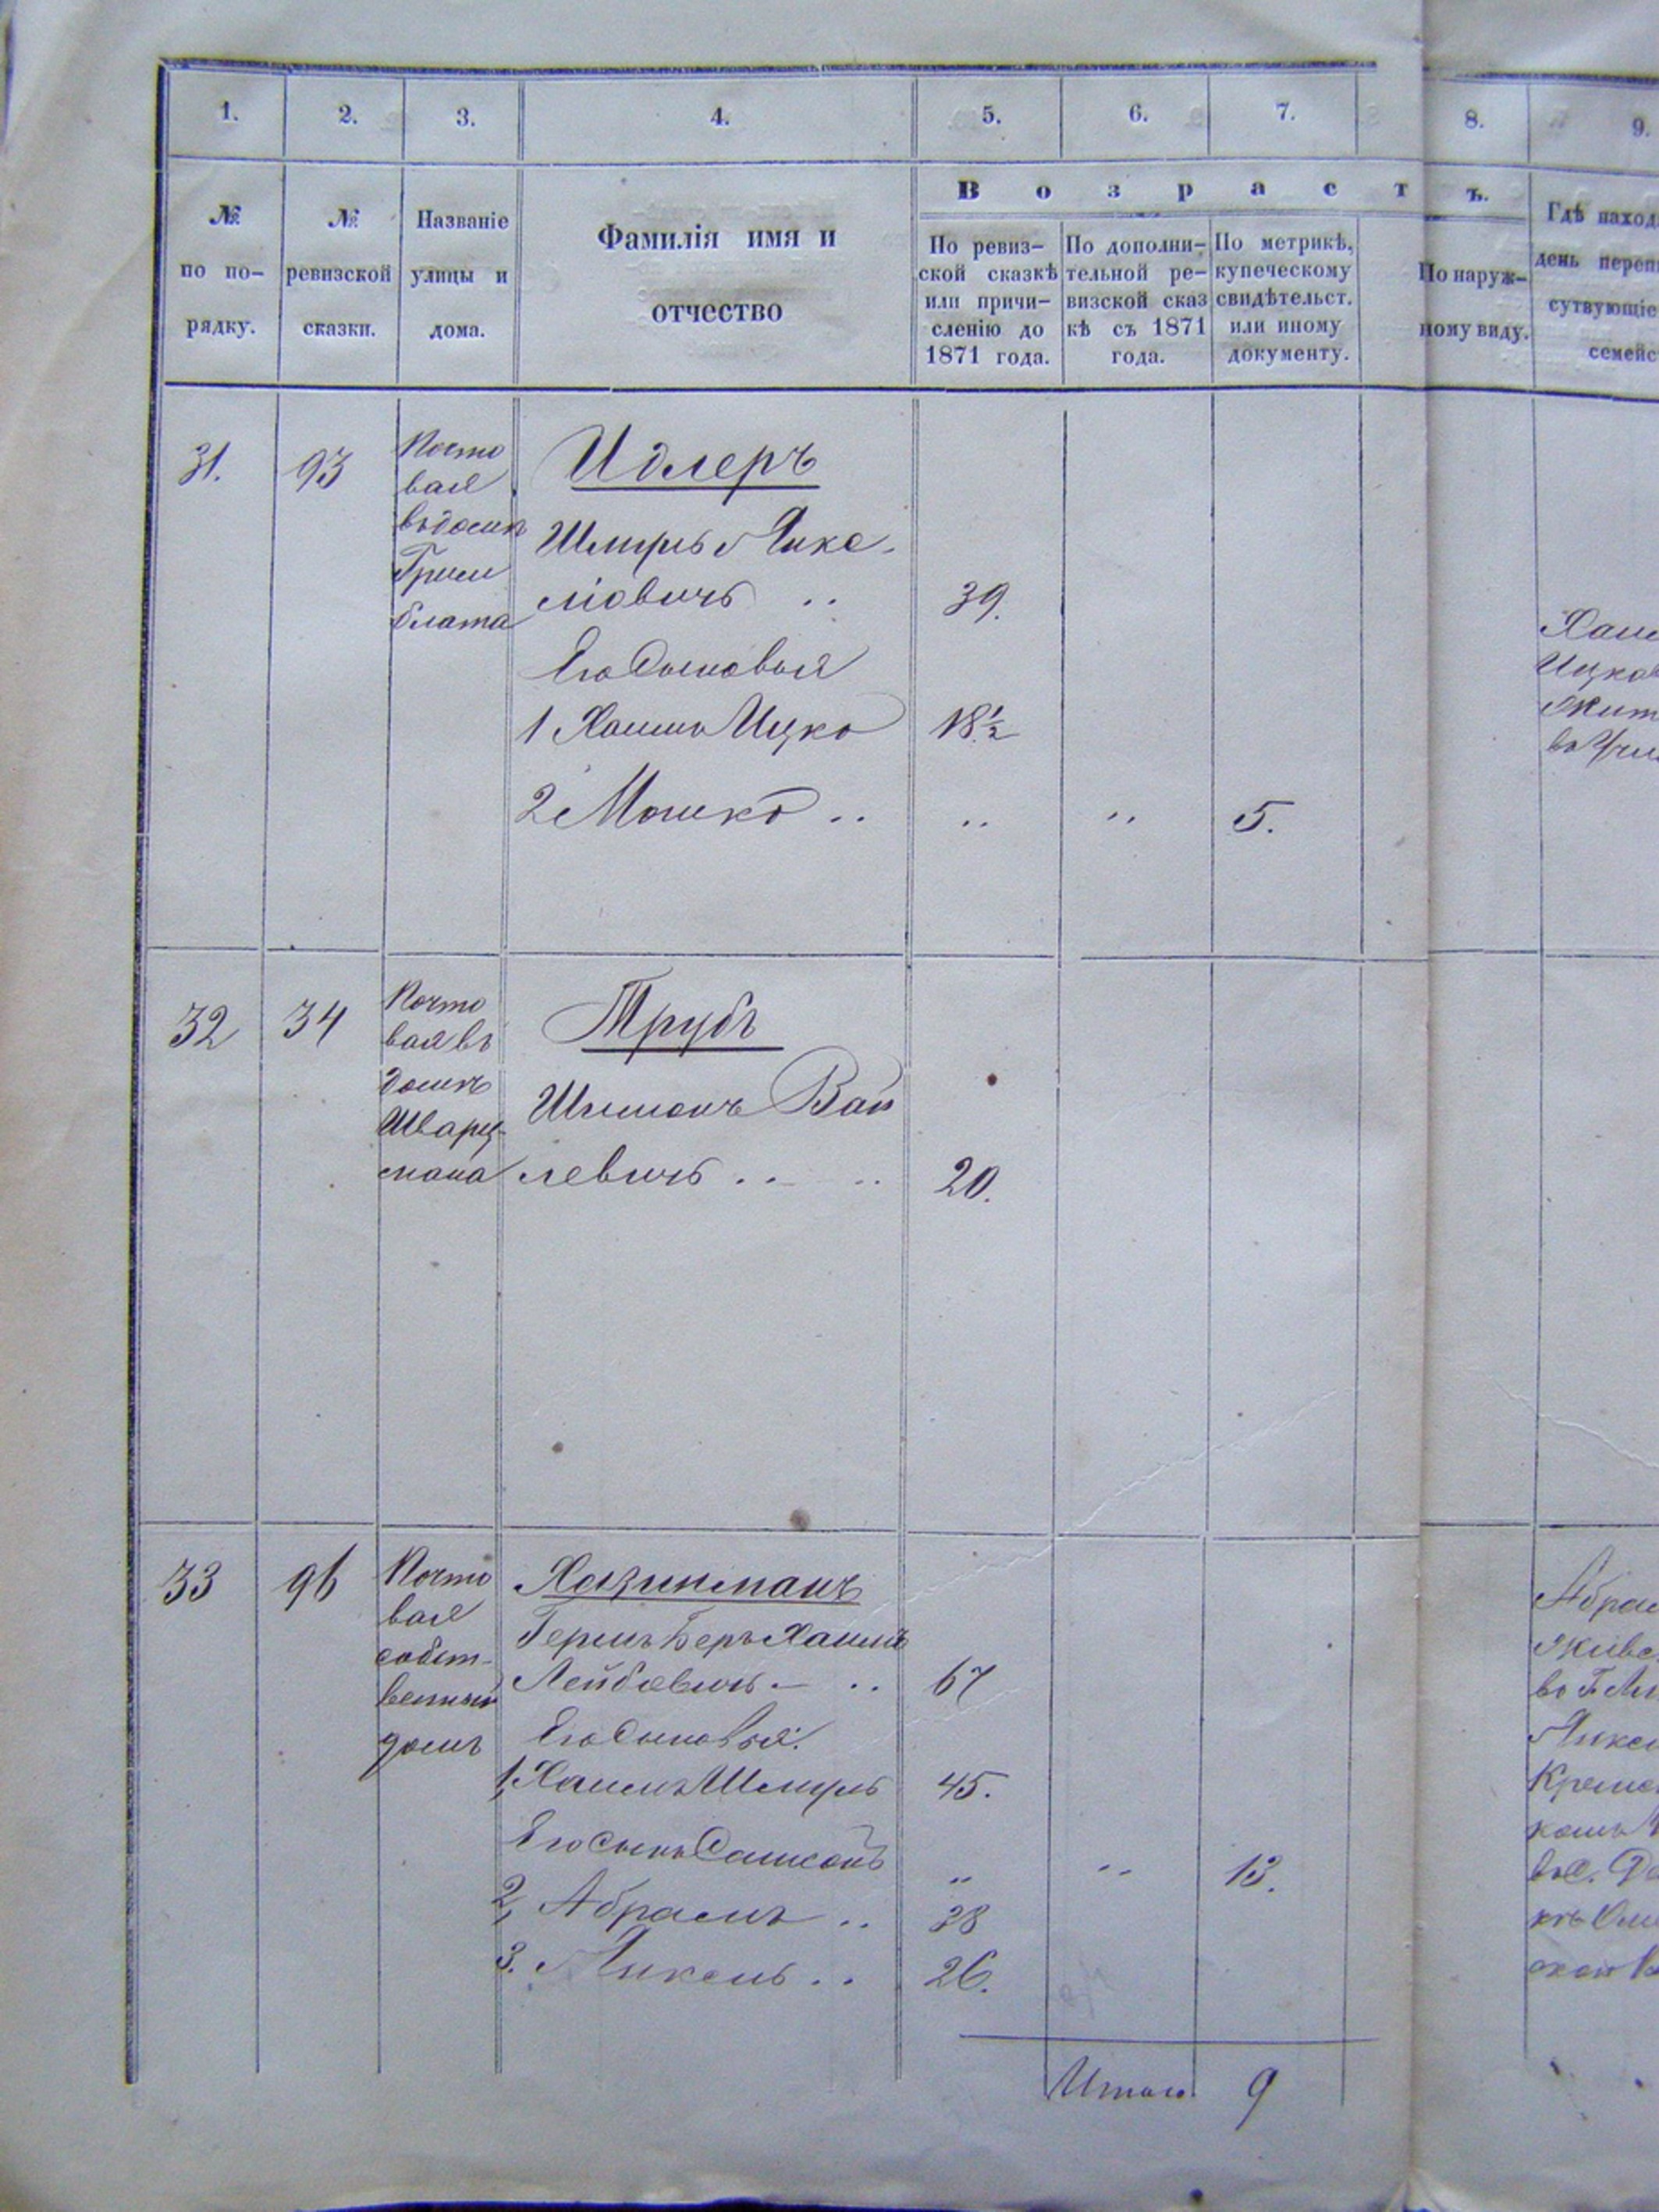 1. 2. 3. 4. 5. 6. 7. 8. 9.
№ по по-рядку.
№ ревизской сказки.
Названіе улицы и дома.
Фамилія имя и
отчество
Возрастъ.
По ревиз-
ской сказкѣ
или причи-
сленію до
1871 года.
По дополни-
тельной ре-
визской сказ
кѣ съ 1871
года.
По метрикѣ,
купеческому
свидѣтельст.
или иному
документу.
По наруж-
ному виду.
Гдѣ наход
день переп
сутвующіе
семейс
31. 93
Почто
вая
въ домѣ
Грин
блата
Идлеръ
Шмуль Янке-
лiовичъ .. 39.
Его Сыновья
1 Хаимъ Ицко 18½
2 Мошко .. .. .. 5.
Хаим
Ицко
Жит
во
32 34
Почто
вая въ
домѣ
Шварц-
мана
Трубъ
Шимонъ Вай
левичъ .. .. 20.
33 96
Почто
вая
собст-
венный
домъ
Хазинманъ
Гершъ Беръ Хаимъ
Лейбовичъ - .. 67
Его Сыновья:
1, Хаимъ Шмуль 45.
Его Сынъ Самсонъ .. .. 13.
2, Абрамъ .. 38
3. Янкель .. 26.
Абрам
Янкел
Кремен
Итого 9